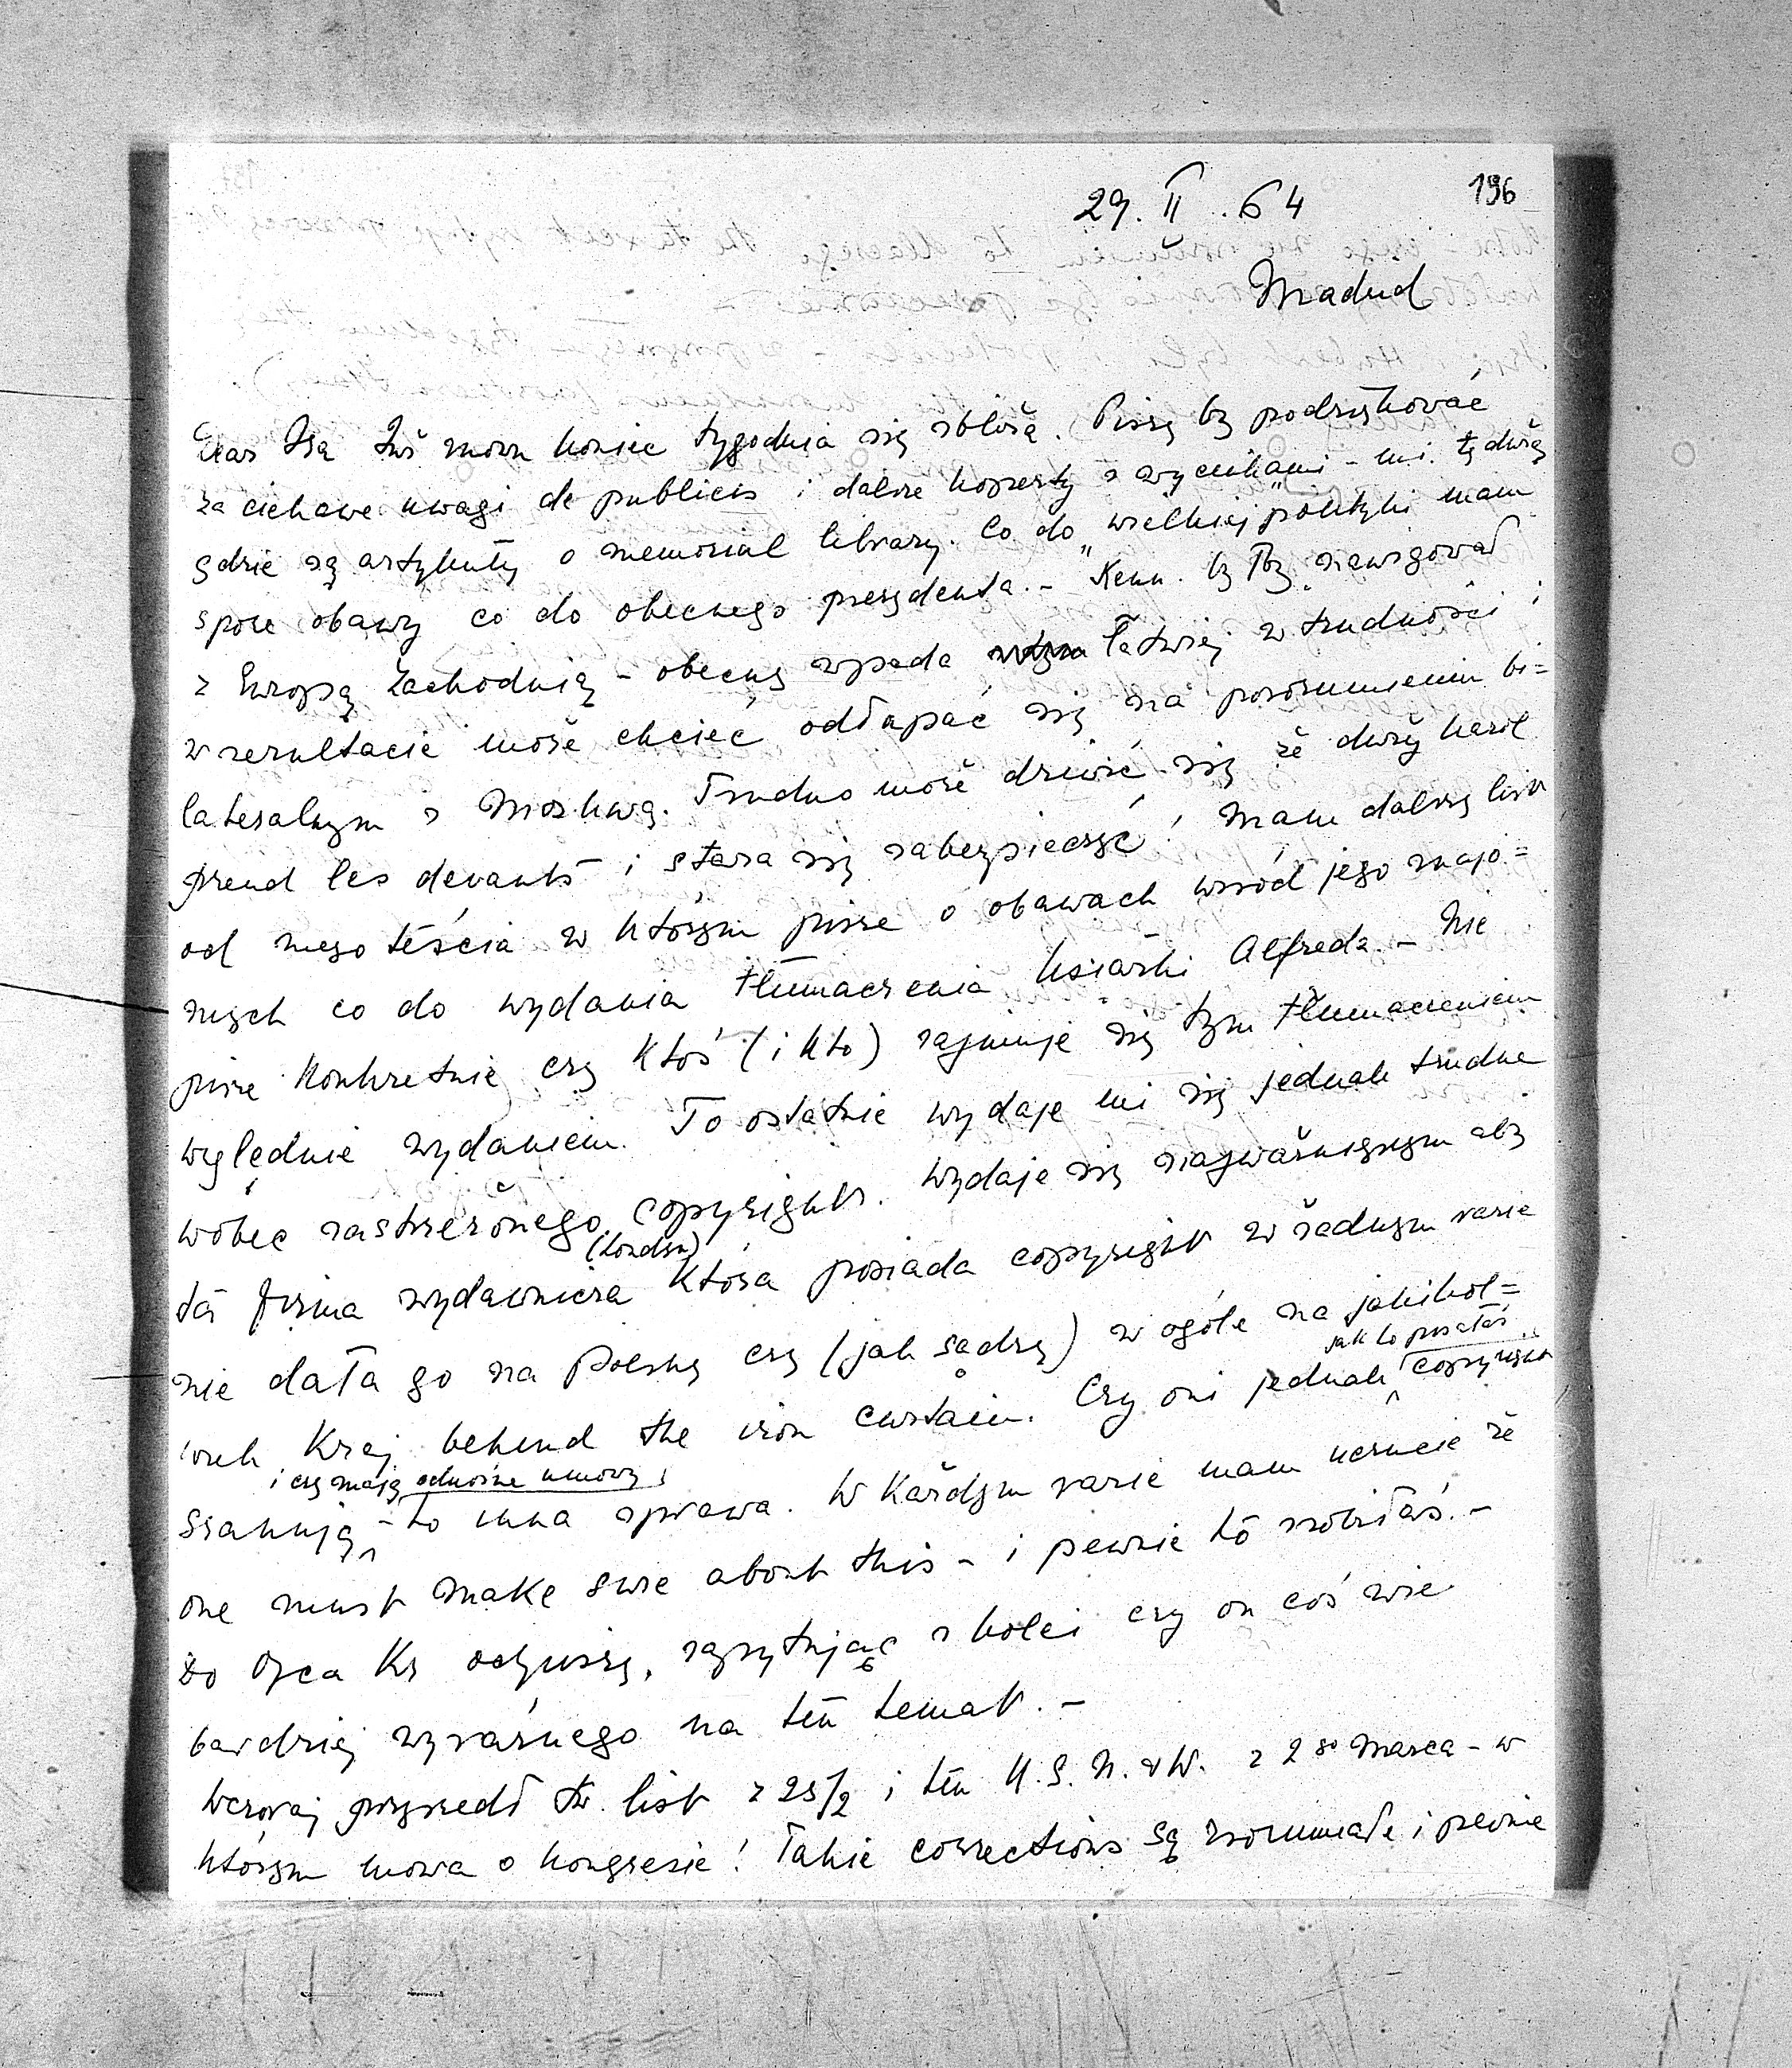 196
29. II . 64
Madrid
Dear Isa Już znów koniec tygodnia się zbliża. Piszę by podziękować
za ciekawe uwagi de publicis i dalsze koperty z wycinkami - mi. tę dużą
gdzie są artykuły o memorial library. Co do „wielkiej" polityki mam
spore obawy co do obecnego prezydenta. - Kenn. by był nawigował
z Europą Zachodnią - obecny wpada łatwiej w trudności i
w rezultacie może chcieć odłapać się na porozumieniu bi=
lateralnym z Moskwą. Trudno może dziwić się że duży Karol
prend les devants i stara się zabezpieczyć! Mam dalszy list
od mego teścia w którym pisze o obawach wśród jego znajo=
mych co do wydania tłumaczenia książki Alfreda. - Nie
pisze konkretnie czy ktoś (i kto) zajmuje się tym tłumaczeniem
względnie wydaniem. To ostatnie wydaje mi się jednak trudne
wobec zastrzeżonego copyright. Wydaje się najważniejszym aby
ta firma wydawnicza (London) która posiada copyright w żadnym razie
nie dała go na Polskę czy (jak sądzę) w ogóle na jakikol=
wiek kraj behind the iron curtain. Czy oni jednak, jak to pisałaś, copyright
szanują - i czy mają odnośne umowy, to inna sprawa. W każdym razie mam uczucie że
one must make sure about this - i pewnie to zrobiłaś. -
Do Ojca Ks odpiszę, zapytując z kolei czy on coś wie
bardziej wyraźnego na ten temat. -
Wczoraj przyszedł tw. list z 25/2 i ten U.S.N.&W. z 2go Marca - w
którym mowa o kongresie! Takie corrections są zrozumiałe i pewnie